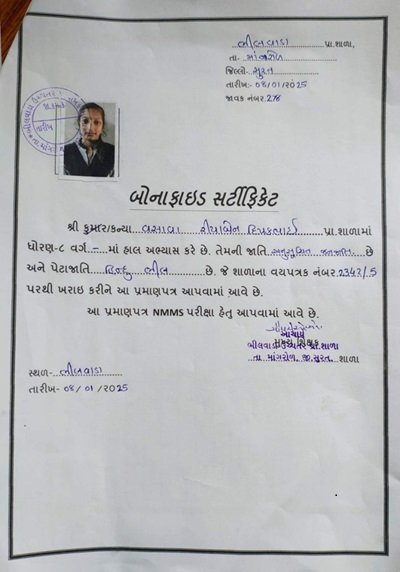 ભીલવાડા પ્રા.શાળા,
તા- માંગરોળ
જિલ્લો- સુરત
તારીખ:- ૦8/01/2025
જાવક નંબર.278
બોનાફાઇડ સર્ટીફિકેટ
શ્રી કુમાર/કન્યા વસાવા દિપકભાઈ પ્રા.શાળામાં
ધોરણ-૮ વર્ગ - માં હાલ અભ્યાસ કરે છે. તેમની જાતિ અનુસૂચિત જનજાતિ છે
અને પેટાજાતિ હિન્દુ ભીલ છે. જે શાળાના વયપત્રક નંબર 2342/5
પરથી ખરાઇ કરીને આ પ્રમાણપત્ર આપવામાં આવે છે.
આ પ્રમાણપત્ર NMMS પરીક્ષા હેતુ આપવામાં આવે છે.
આચાર્ય
મુખ્ય શિક્ષક
ભીલવાડા પ્રા.શાળા
તા માંગરોળ, જી.સુરત. શાળા
સ્થળ:- ભીલવાડા
તારીખ:- ૦8/01/2025